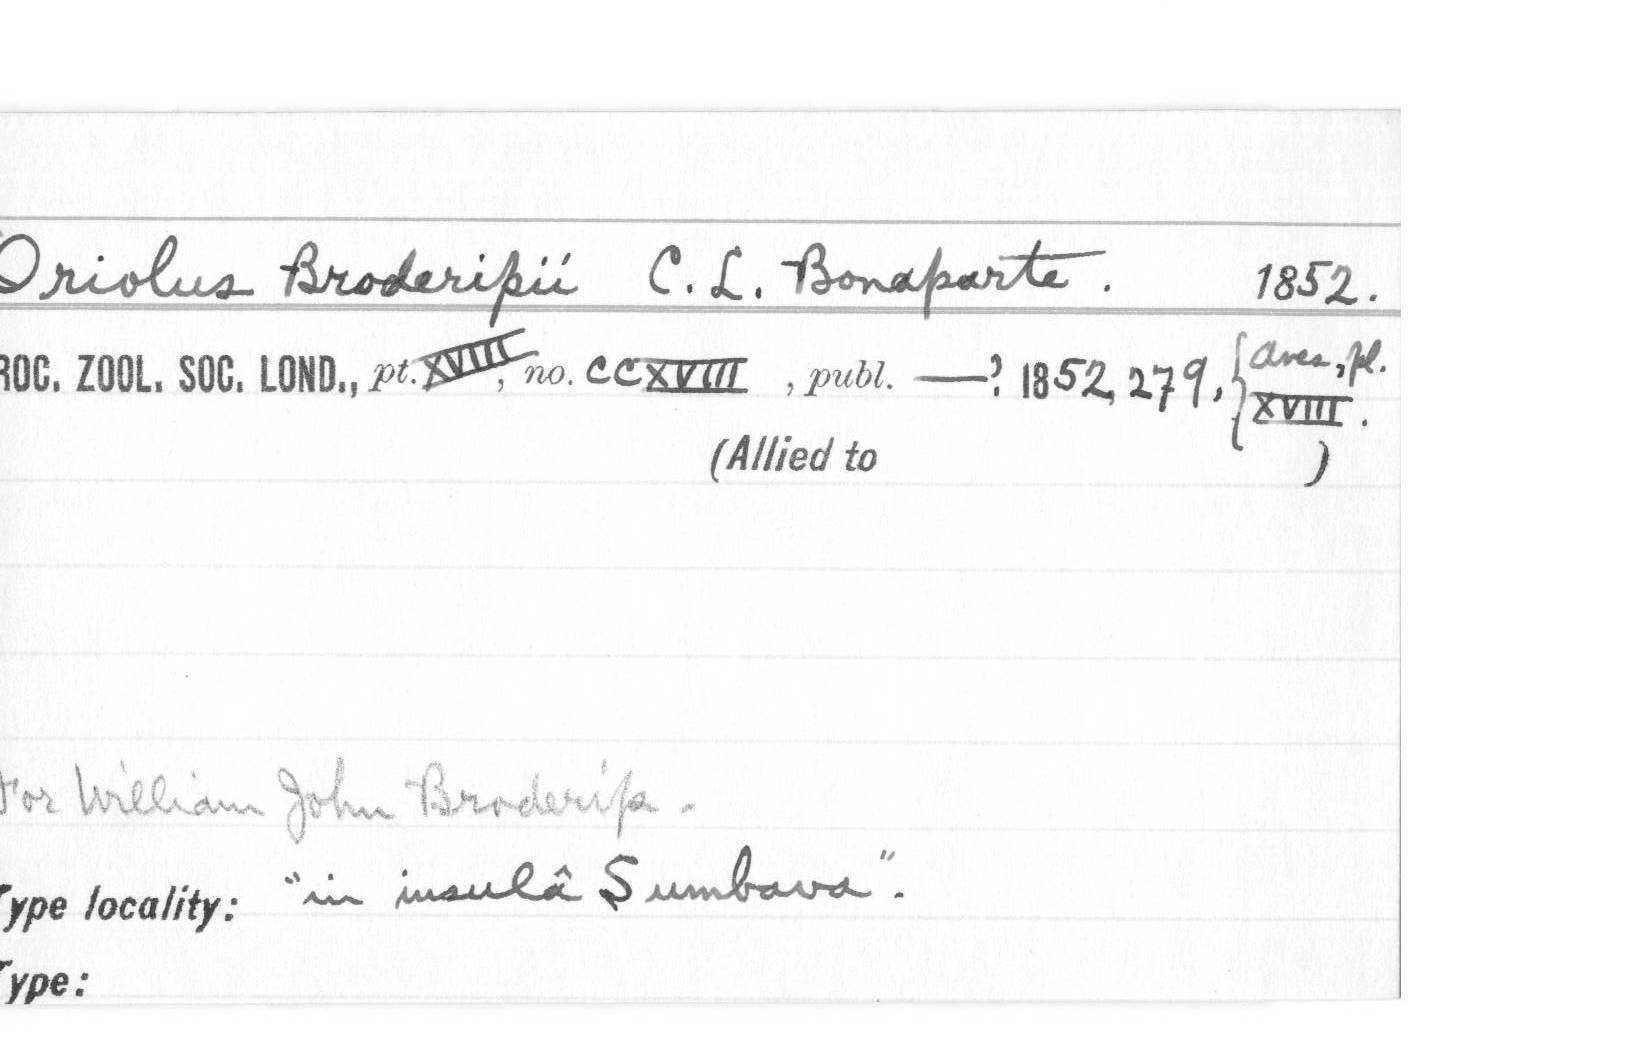 Oriolus Broderipii C. L. Bonaparte. 1852.
ROC. ZOOL. SOC. LOND., pt. XVIII, no. CCXVIII, publ. —? 1852, 279, {Aves, pl. XVIII.
(Allied to )
For William John Broderip.
Type locality: "in insulâ Sumbava".
Type: